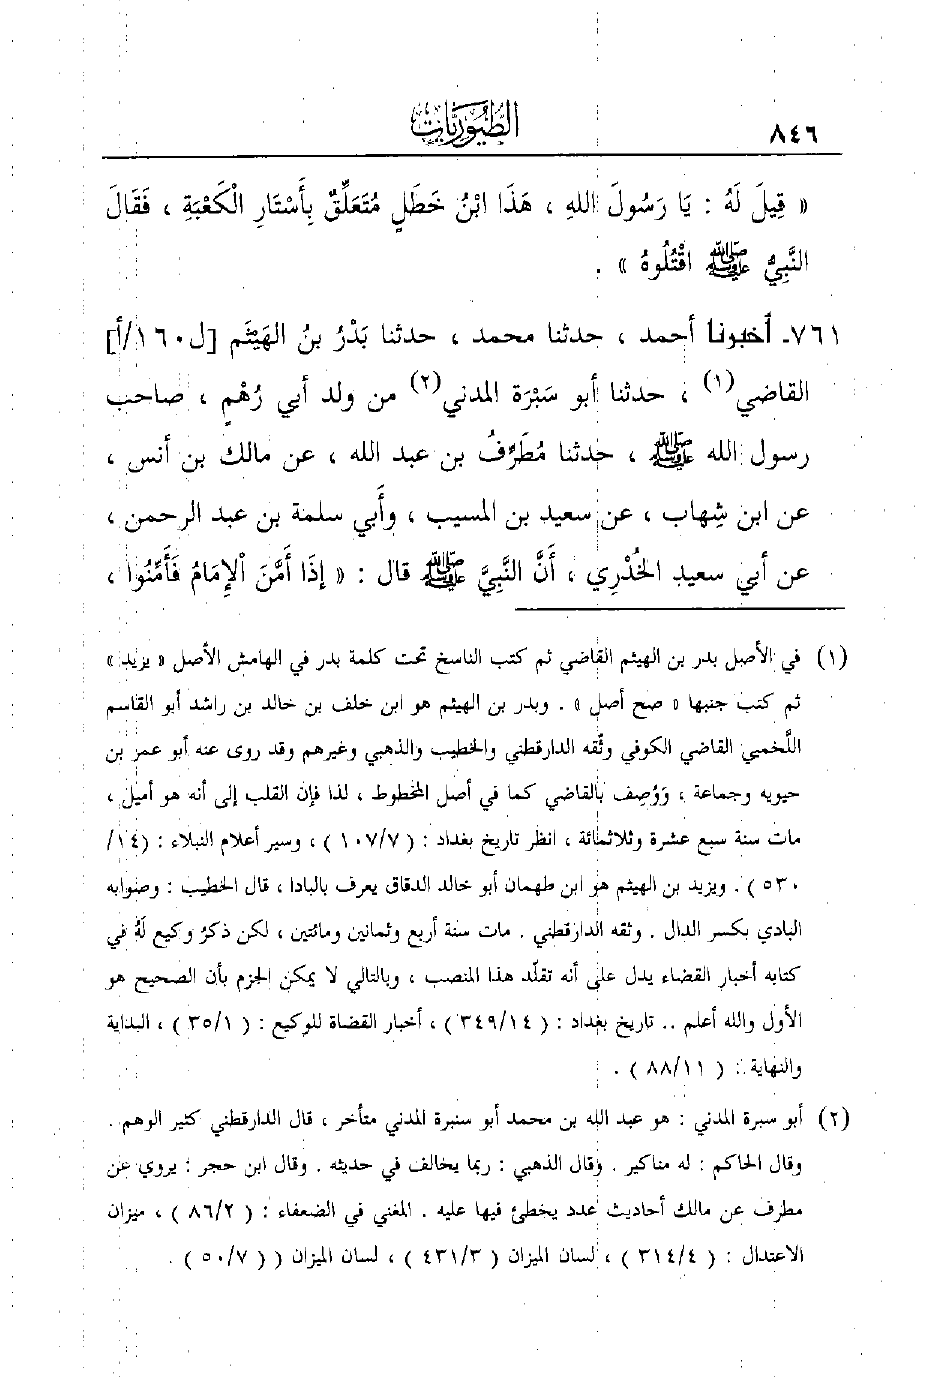 ٨٤٦
الطيوريات
« قِيلَ لَهُ : يَا رَسُولَ اللهِ ، هَذَا ابْنُ خَطَلٍ مُتَعَلِّقٌ بِأَسْتَارِ الْكَعْبَةِ ، فَقَالَ
النَّبِيُّ ﷺ اقْتُلُوهُ » .
٧٦١ـ أخبرنا أحمد ، حدثنا محمد ، حدثنا بَدْرُ بنُ الهَيْثَم [ل١٦٠/أ]
القاضي(١) ، حدثنا أبو سَبْرَة المدني(٢) من ولد أبي رُهْمٍ ، صاحب
رسول الله ﷺ ، حدثنا مُطَرِّفُ بن عبد الله ، عن مالك بن أنس ،
عن ابن شِهاب ، عن سعيد بن المسيب ، وأَبي سلمة بن عبد الرحمن ،
عن أبي سعيد الخُدْرِي ، أَنَّ النَّبِيَّ ﷺ قال : « إِذَا أَمَّنَ الإِمَامُ فَأَمِّنُوا ،
(١) في الأصل بدر بن الهيثم القاضي ثم كتب الناسخ تحت كلمة بدر في الهامش الأصل « يزيد »
ثم كتب جنبها « صح أصل » . وبدر بن الهيثم هو ابن خلف بن خالد بن راشد أبو القاسم
اللَّخمي القاضي الكوفي وثّقه الدارقطني والخطيب والذهبي وغيرهم وقد روى عنه أبو عمر بن
حيويه وجماعة ، وَوُصِف بالقاضي كما في أصل المخطوط ، لذا فإن القلب إلى أنه هو أميل ،
مات سنة سبع عشرة وثلاثمائة ، انظر تاريخ بغداد : ( ١٠٧/٧ ) ، وسير أعلام النبلاء : (١٤/
٥٣٠ ) . ويزيد بن الهيثم هو ابن طهمان أبو خالد الدقاق يعرف بالبادا ، قال الخطيب : وصوابه
البادي بكسر الدال . وثقه الدارقطني . مات سنة أربع وثمانين ومائتين ، لكن ذكرُ وكيع لَهُ في
كتابه أخبار القضاء يدل على أنه تقلّد هذا المنصب ، وبالتالي لا يمكن الجزم بأن الصحيح هو
الأول والله أعلم .. تاريخ بغداد : ( ٣٤٩/١٤ ) ، أخبار القضاة للوكيع : ( ٣٥/١ ) ، البداية
والنهاية : ( ٨٨/١١ ) .
(٢) أبو سبرة المدني : هو عبد الله بن محمد أبو سبرة المدني متأخر ، قال الدارقطني كثير الوهم .
وقال الحاكم : له مناكير . وقال الذهبي : ربما يخالف في حديثه . وقال ابن حجر : يروي عن
مطرف عن مالك أحاديث عدد يخطئ فيها عليه . المغني في الضعفاء : ( ٨٦/٢ ) ، ميزان
الاعتدال : ( ٣١٤/٤ ) ، لسان الميزان ( ٤٣١/٣ ) ، لسان الميزان ( ( ٥٠/٧ ) .